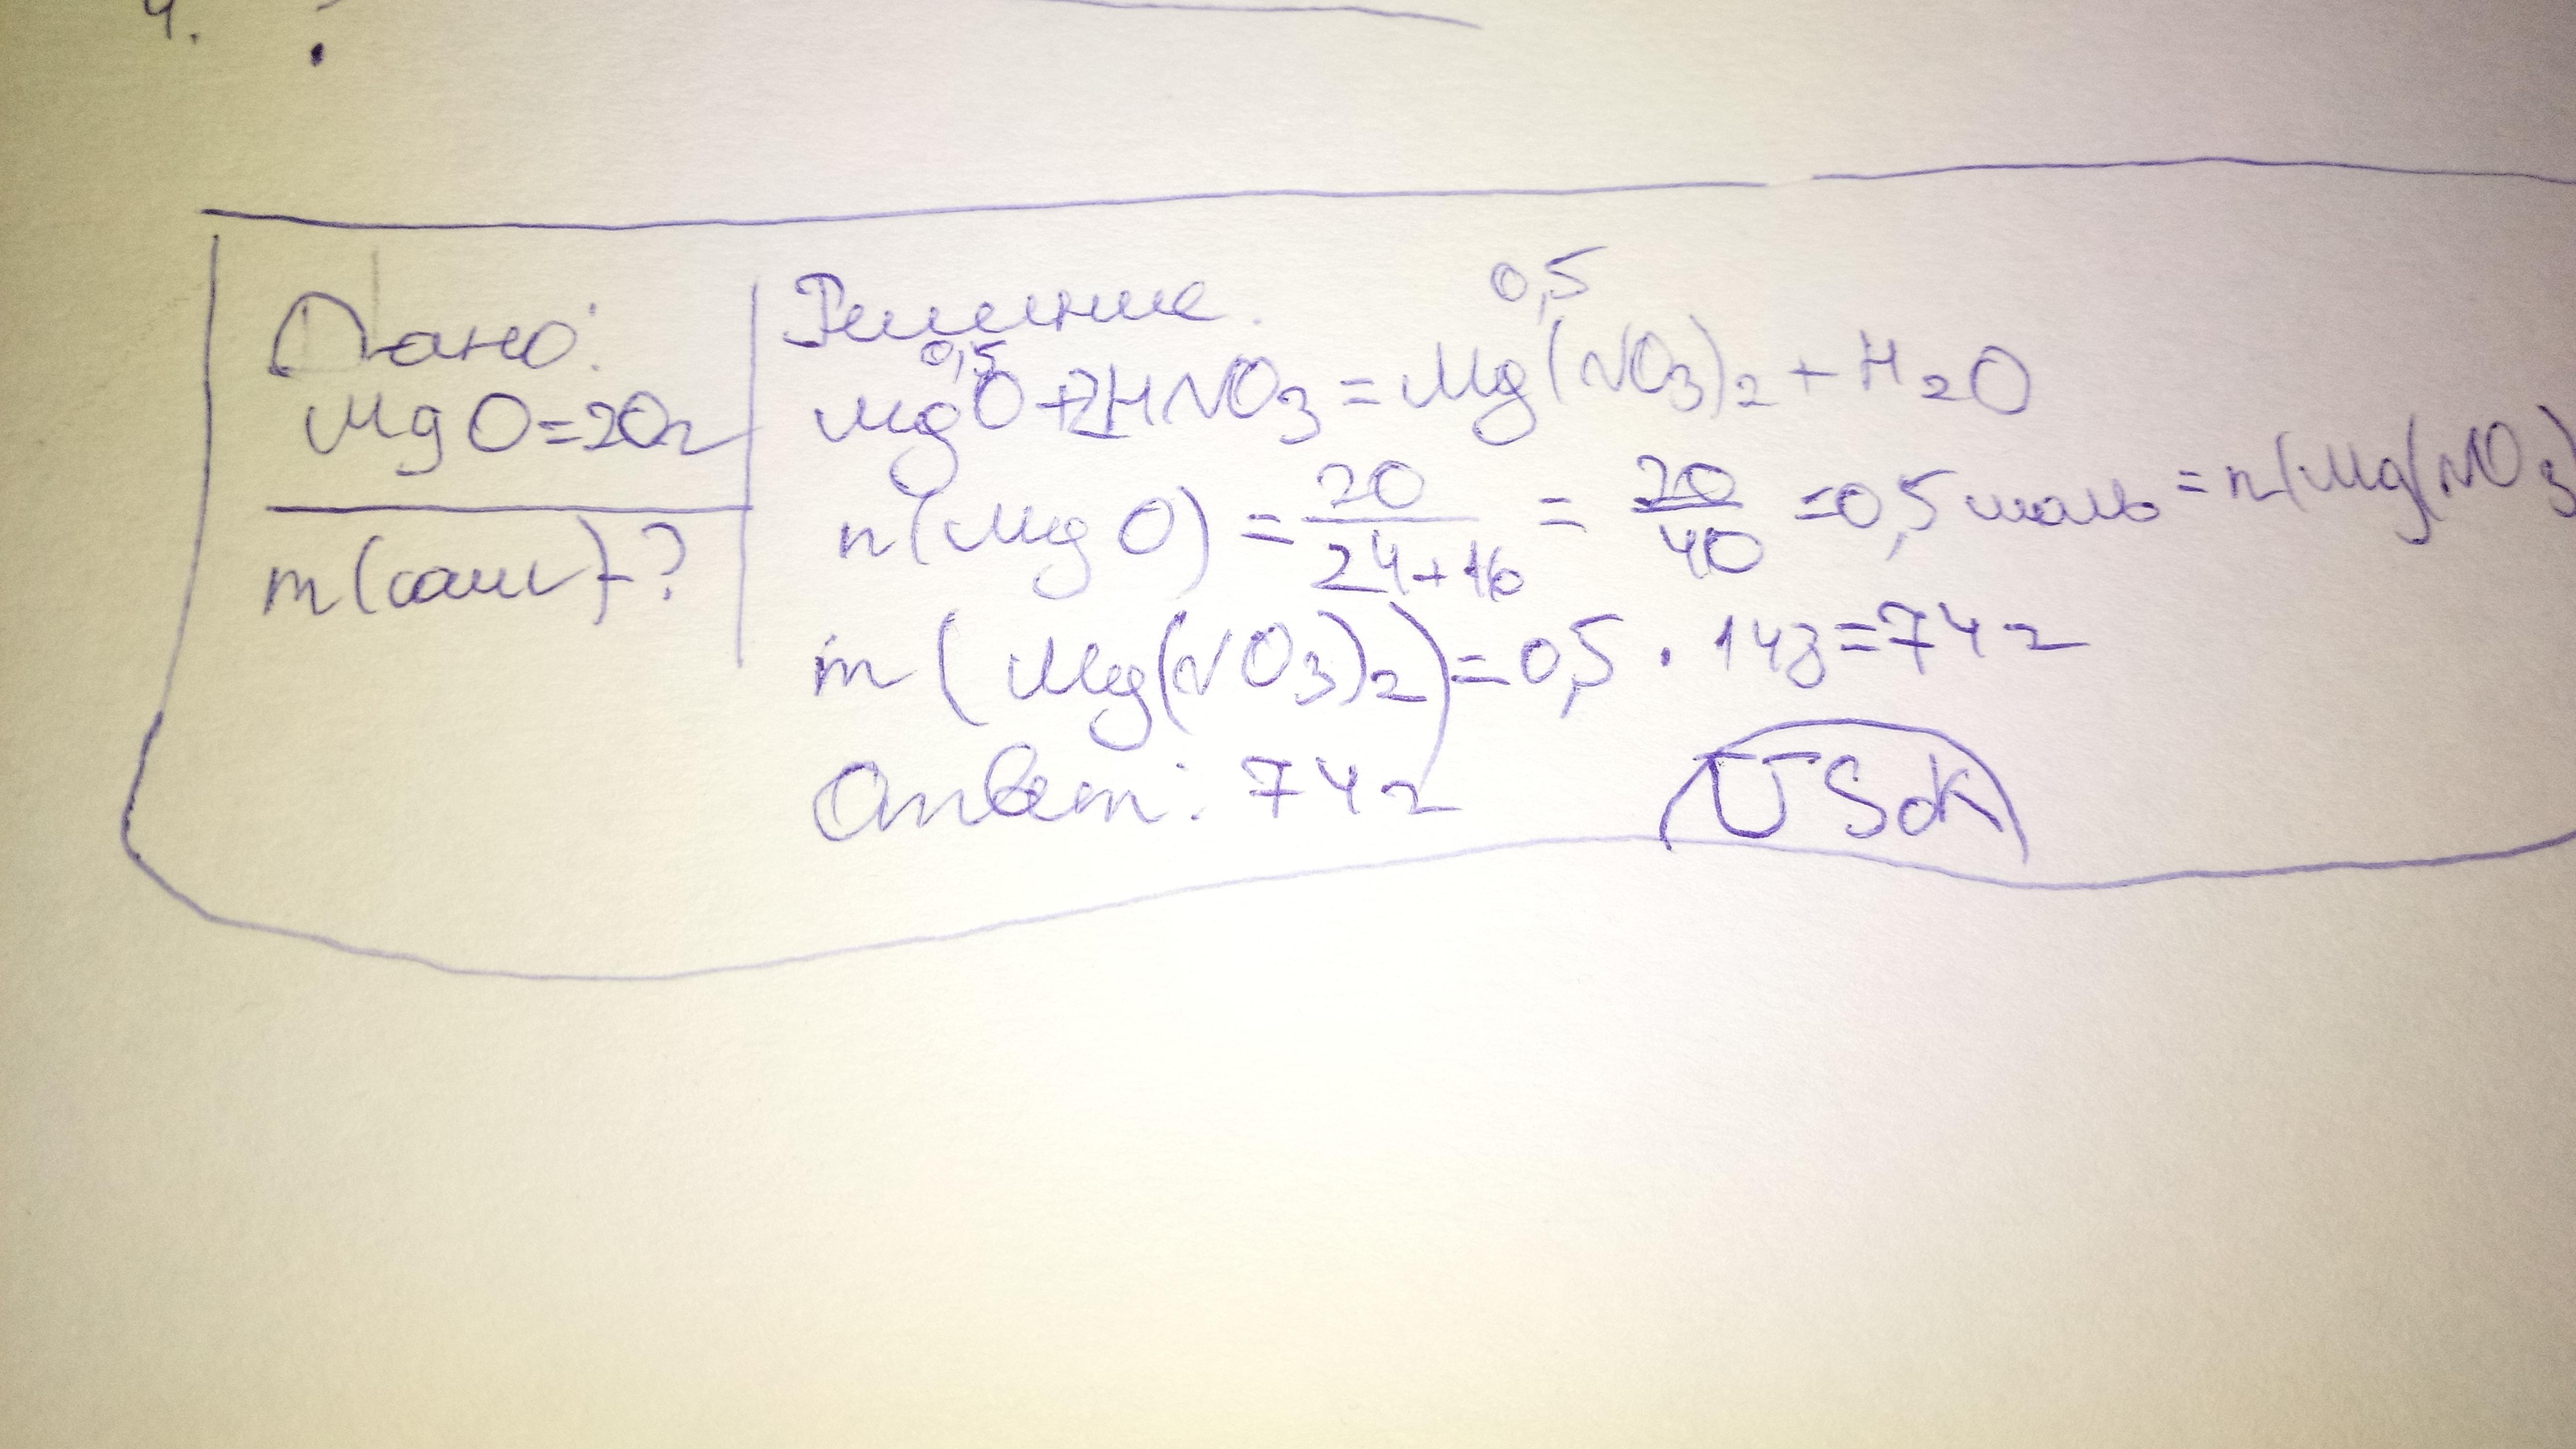 4.
Дано:
MgO=20г
m(соли)-?
Решение.
0,5 0,5
MgO+2HNO3=Mg(NO3)2+H2O
n(MgO)=20/24+16=20/40=0,5моль=n(Mg(NO3)
m(Mg(NO3)2)=0,5·148=74г
Ответ: 74г
USOK